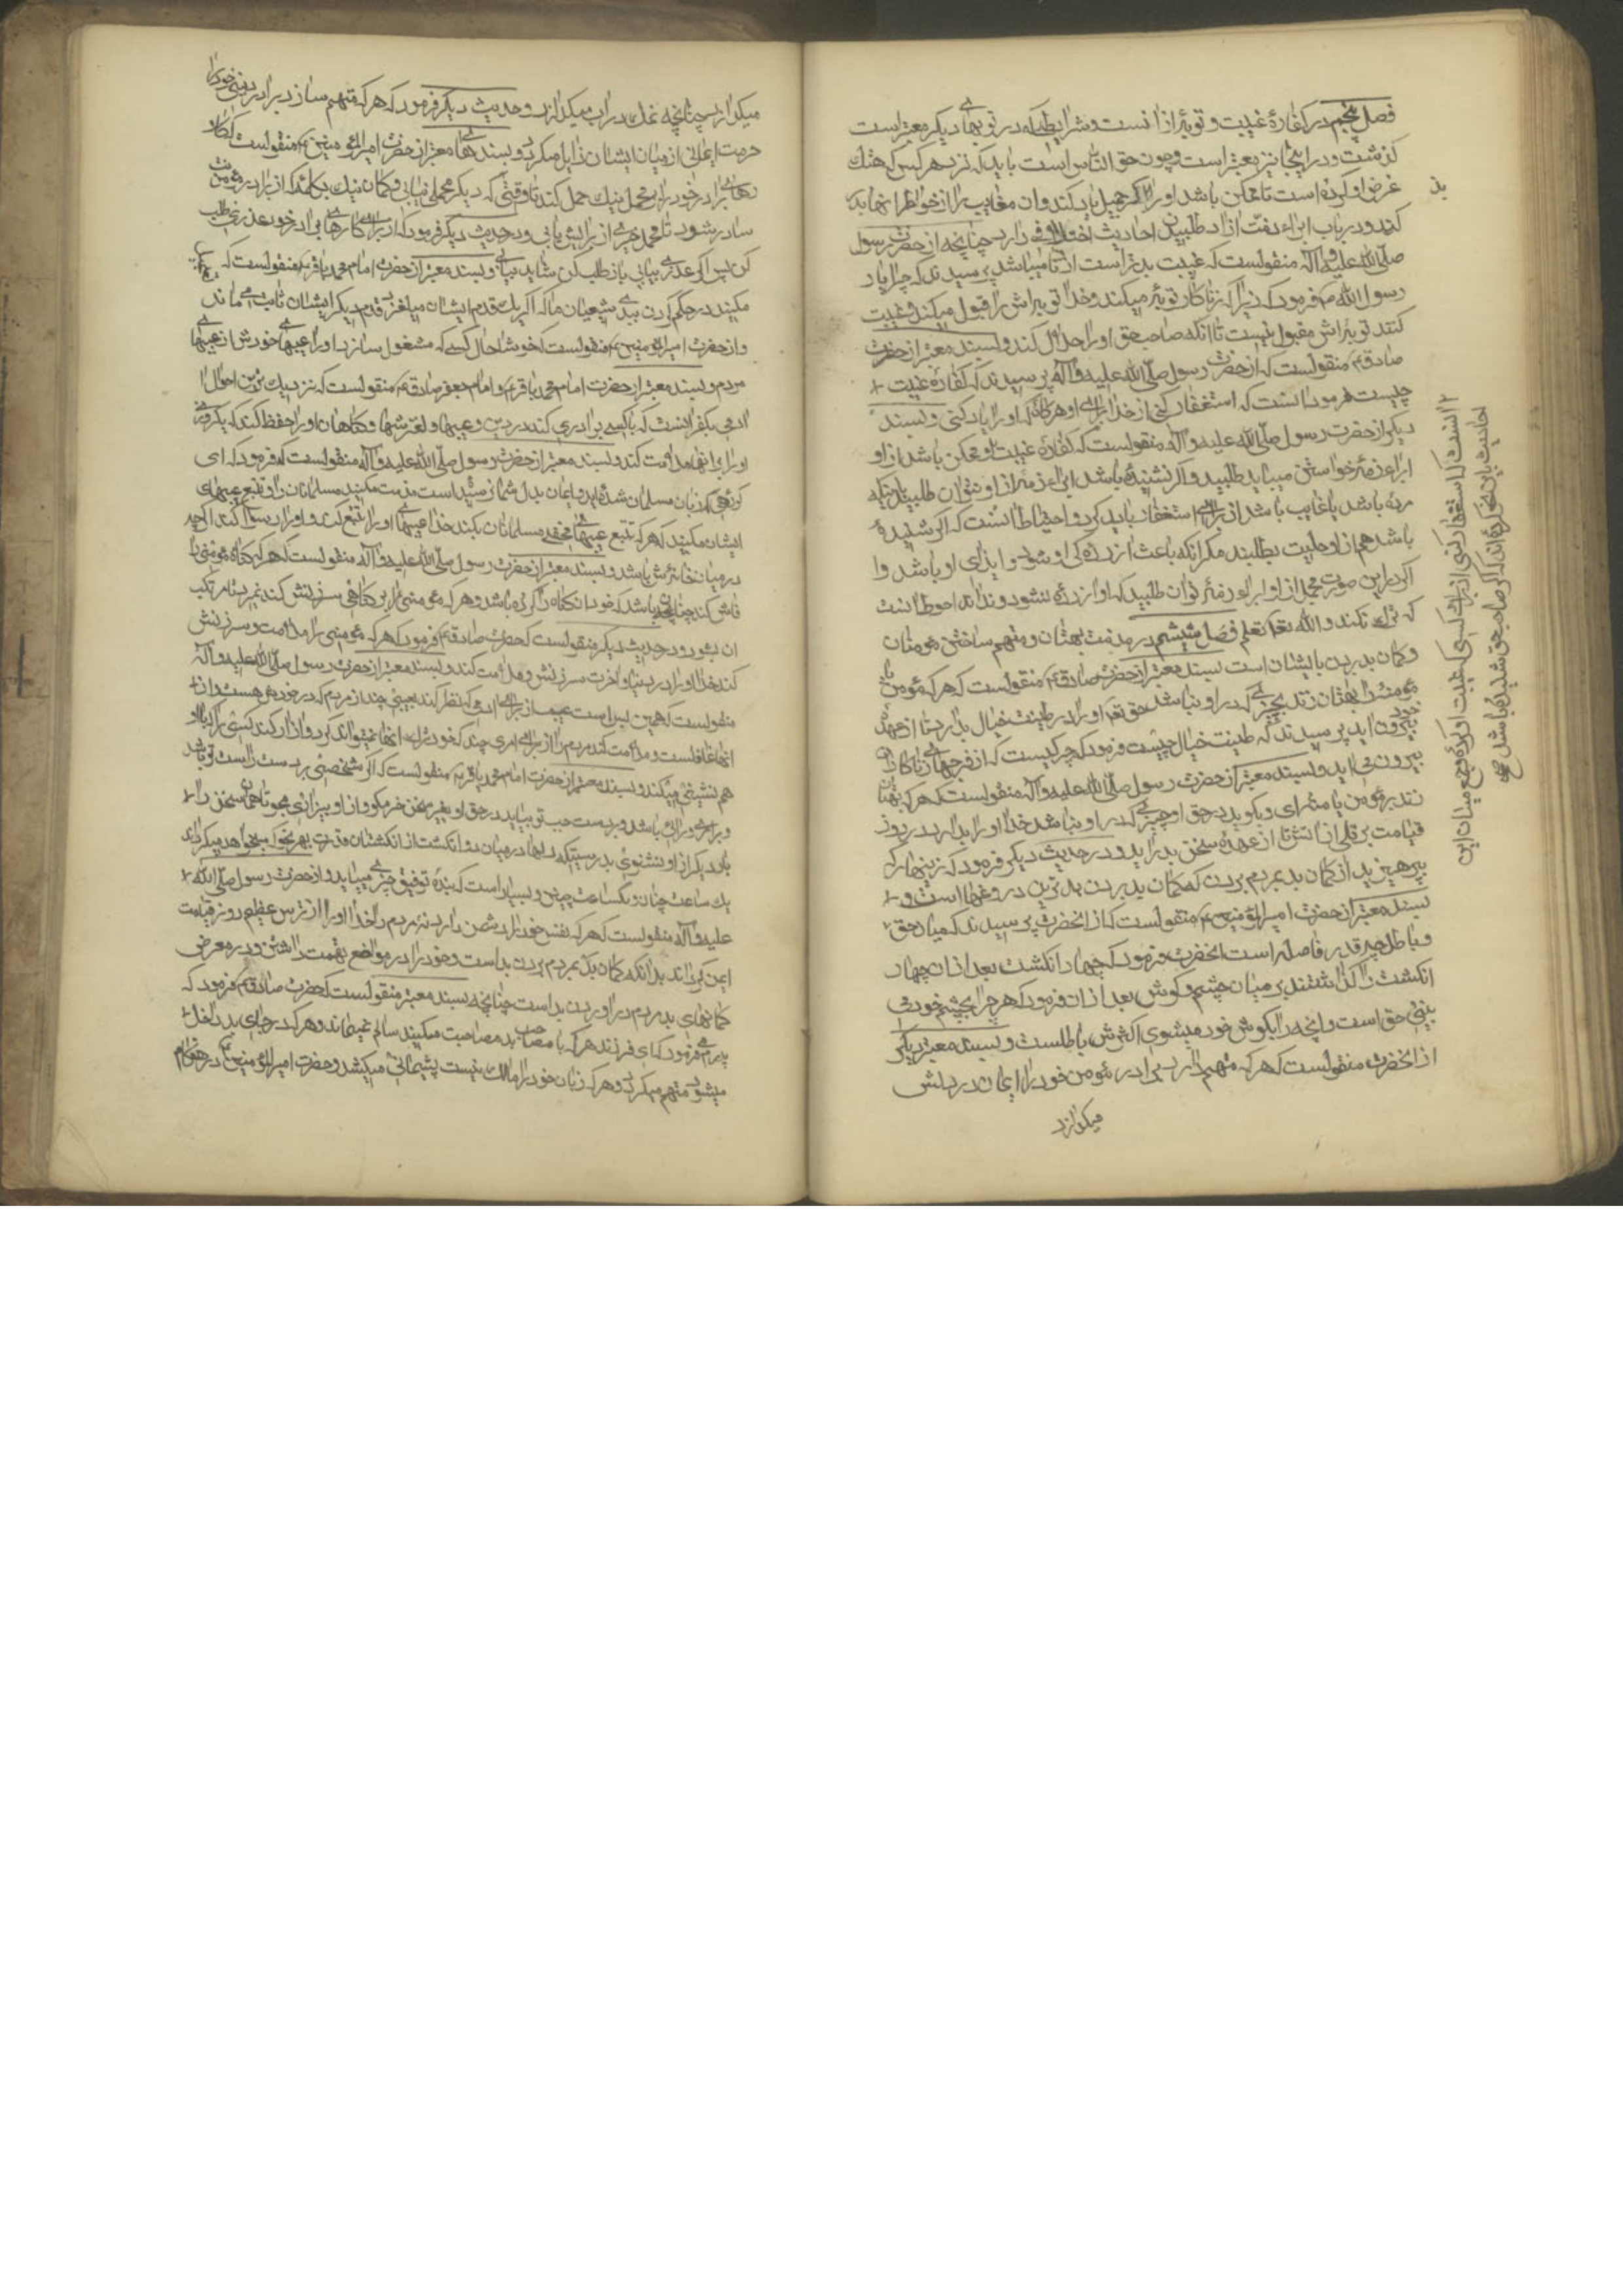 فصل پنجم در کفارهٔ غیبت و توبهٔ از انست و شرایطی که در توبهای دیکر معتبر است
کذشت در اینجا نیز معتبر است و چون حق الناس است باید که نزد هر کس که هتك
عرض او کرده است تا ممکن باشد او را بذکر جمیل یاد کند و ان معایب را از خواطر انها بدر
کند و در باب ابراء ذمت از او طلبیدن احادیث اختلافی دارد چنانچه از حضرت رسول
صلّی الله علیه و آله منقولست که غیبت بدتر است از زنا میباشد پرسیدند که چرا یا
رسول الله ص فرمود که زیرا که زناکار توبه میکند و خدا توبه اش را قبول میکند و غیبت
کننده توبه اش مقبول نیست تا انکه صاحب حق او را حلال کند و بسند معتبر از حضرت
صادق ع منقولست که از حضرت رسول صلّی الله علیه و آله پرسیدند که کفارهٔ غیبت
چیست فرمود انست که استغفار کنی از خدا برای او هر کاه که او را یاد کنی و بسند
دیکر از حضرت رسول صلّی الله علیه و آله منقولست که کفارهٔ غیبت تا ممکن باشد از او
ابراء ذمه خواستن میباید طلبید و اکر نشنیده باشد ابراء ذمه از او نتوان طلبید باینکه
مرده باشد یا غایب باشد از برای او استغفار باید کرد و احتیاط انست که اکر شنیده
باشد هم از او حلیت بطلبند مکر انکه باعث ازردکی او شود و ایذای او باشد و ا
اکر در این صورت مجمل از او ابراء ذمه توان طلبید که او ازرده نشود و نداند احوط انست
که ترك نکند و الله تعالی یعلم فصل ششم در مذمت بهتان و متهم ساختن مومنان
و کمان بد بردن بایشان است بسند معتبر از حضرت صادق ع منقولست که هر که مومن یا
مومنه را بهتان زند بچیزی که در او نباشد حق تعالی او را در طینت خبال بدارد تا از عهدهٔ
بیرون اید پرسیدند که طینت خبال چیست فرمود که چرکیست که از فرجهای زناکاران
بیرون می اید و بسند معتبر از حضرت رسول صلّی الله علیه و آله منقولست که هر که بهتان
زند بر مومن یا مومنهٔ و یا کوید در حق او چیزی که در او نباشد خدا او را بدارد در روز
قیامت بر تلی از اتش تا از عهدهٔ سخن بدر اید و در حدیث دیکر فرمود که زینهار که
بپرهیزید از کمان بد بمردم بردن که کمان بد بردن بدترین دروغها است و
بسند معتبر از حضرت امیر المومنین ع منقولست که از انحضرت پرسیدند که میان حق
و باطل چه قدر فاصله است انحضرت فرمود که چهار انکشت بعد از ان چهار
انکشت را کذاشتند بر میان چشم و کوش بعد از ان فرمود که هر چه را بچشم خود
بینی حق است و انچه را بکوش خود میشنوی اکثرش باطلست و بسند معتبر دیکر
از انحضرت منقولست که هر که متهم دارد برادر مومن خود را ایمان در دلش
میکدازد
انست که استغفار کنی از برای کسی که غیبت او کردهٔ و جمع میان این
احادیث باین نحو کرده اند که اکر صاحب حق شنیده باشد صح
میکدازد چنانچه نمك در اب میکدازد و حدیث دیکر فرمود که هر که متهم سازد برادر دینی خود را
حرمت ایمانی از میان ایشان زایل میکردد و بسندهای معتبر از حضرت امیر المومنین ع منقولست که کار
های برادر خود را بر محمل نیك حمل کند تا وقتی که دیکر محملی نیابی و کمان نیك بکلمهٔ که از برادر مومنت
صادر شود تا محمل خیری از برایش یابی و در حدیث دیکر فرمود که از برای کارهای برادر خود عذری طلب
کن پس اکر عذری نیابی باز طلب کن شاید بیابی و بسند معتبر از حضرت امام محمد باقر ع منقولست که
مکنید در حکم کردن ببدی شیعیان ما که اکر یك قدم ایشان میلغزد قدم دیکر ایشان ثابت می ماند
و از حضرت امیر المومنین ع منقولست که خوشا حال کسی که مشغول سازد او را عیبهای خودش از عیبهای
مردم و بسند معتبر از حضرت امام محمد باقر ع و امام جعفر صادق ع منقولست که نزدیك ترین احوال
ادمی بکفر انست که با کسی برادری کند در دین و عیبها و لغزشها و کناهان او را حفظ کند که یکروزی
او را بر انها ملامت کند و بسند معتبر از حضرت رسول صلّی الله علیه و آله منقولست که فرمود که ای
کروهی که بزبان مسلمان شده اید و ایمان بدل شما نرسیده است مذمت مکنید مسلمانان را و تتبع عیبهای
ایشان مکنید که هر که تتبع عیبهای مخفی مسلمانان بکند خدا عیبهای او را تتبع کند و او را رسوا کند اکر چه
در میان خانه اش باشد و بسند معتبر از حضرت رسول صلّی الله علیه و آله منقولست که هر که کناه مومنی را
فاش کند چنان باشد که خود ان کناه را کرده باشد و هر که مومنی را بر کناهی سرزنش کند نمیرد تا مرتکب
ان بشود و در حدیث دیکر منقولست که حضرت صادق ع فرمود که هر که مومنی را ملامت و سرزنش
کند خدا او را در دنیا و اخرت سرزنش و ملامت کند و بسند معتبر از حضرت رسول صلّی الله علیه و آله
منقولست که همین بس است عیب از برای ادمی که نظر کند بعیبی چند از مردم که در خودش هست و از
انها غافلست و ملامت کند مردم را از برای امری چند که خود ترك انها نمیتواند کرد و ازار کند کسی را که با او
هم نشینی میکند و بسند معتبر از حضرت امام محمد باقر ع منقولست که اکر شخصی بر دست راست تو باشد
و بر امری و رائی باشد و بر دست چپ تو بیاید در حق او بغیر سخن خیر مکو و از او بیزاری مجو تا همان سخن را
بار دیکر از او نشنوی بدرستیکه دلها در میان دو انکشت از انکشتان قدرت بهر نحو که میخواهد میکرداند
یك ساعت چنان و یکساعت چنین و بسیار است که بنده توفیق چیزی مییابد و از حضرت رسول صلّی الله
علیه و آله منقولست که هر که نفس خود را دشمن دارد نه مردم را خدا او را از ترس عظیم روز قیامت
ایمن کرداند بدانکه کمان بد بمردم بردن بد است و خود را در مواضع تهمت داشتن و در معرض
کمانهای بد مردم در اوردن بد است چنانچه بسند معتبر منقولست که حضرت صادق ع فرمود که
پدرم فرمود که ای فرزند هر که با مصاحب بد مصاحبت میکند سالم نمیماند و هر که در جای بد داخل
میشود متهم میکردد و هر که زبان خود را مالك نیست پشیمانی میکشد و حضرت امیر المومنین ع در هنکام